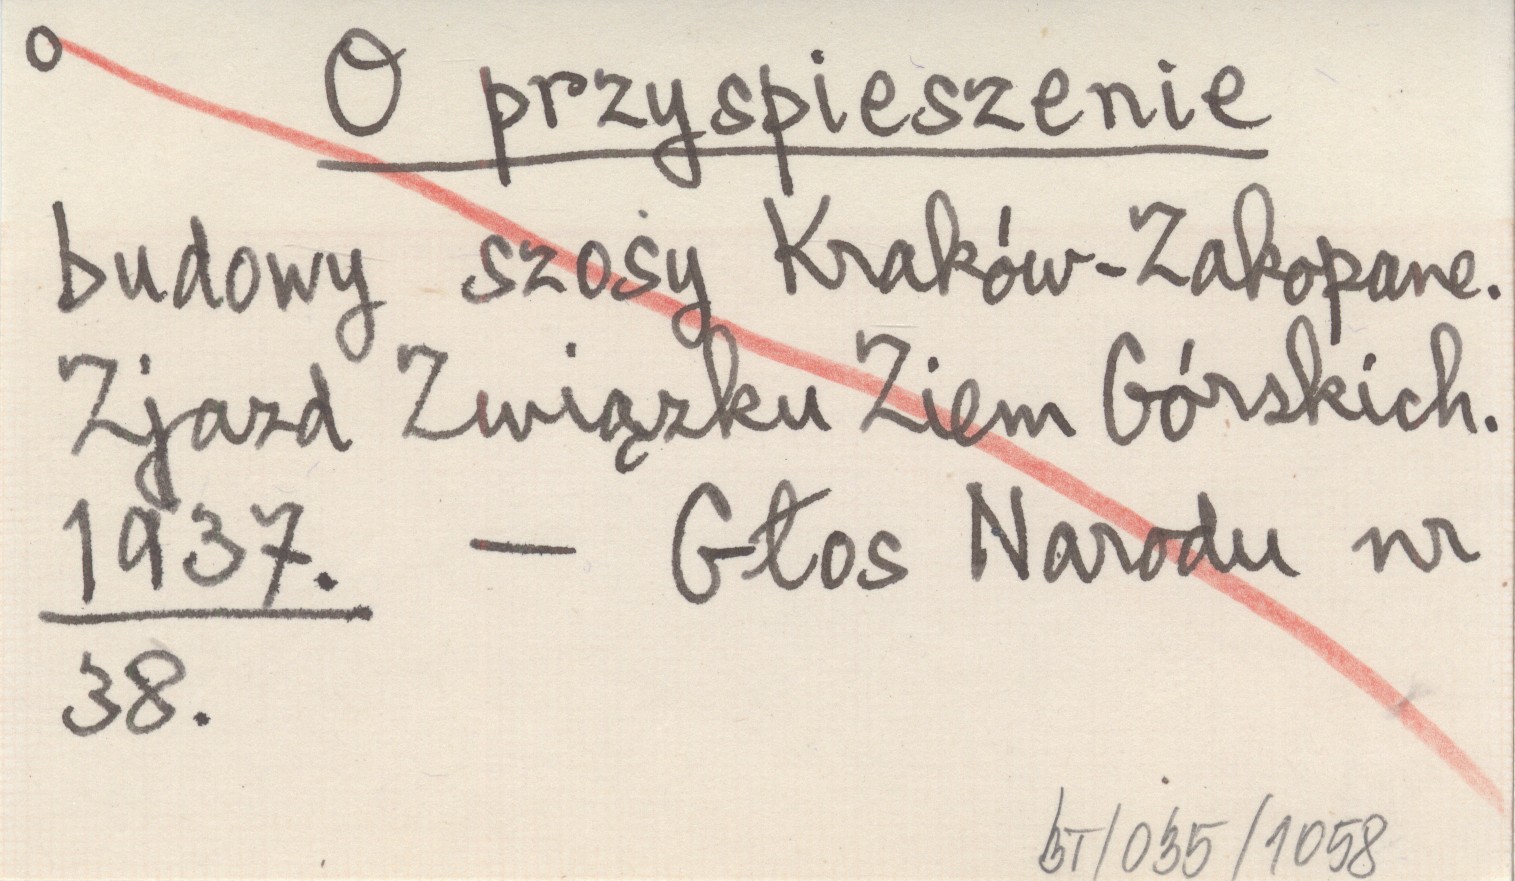 o O przyspieszenie
budowy szosy Kraków-Zakopane.
Zjazd Związku Ziem Górskich.
1937. — Głos Narodu nr
38.
bT/035/1058